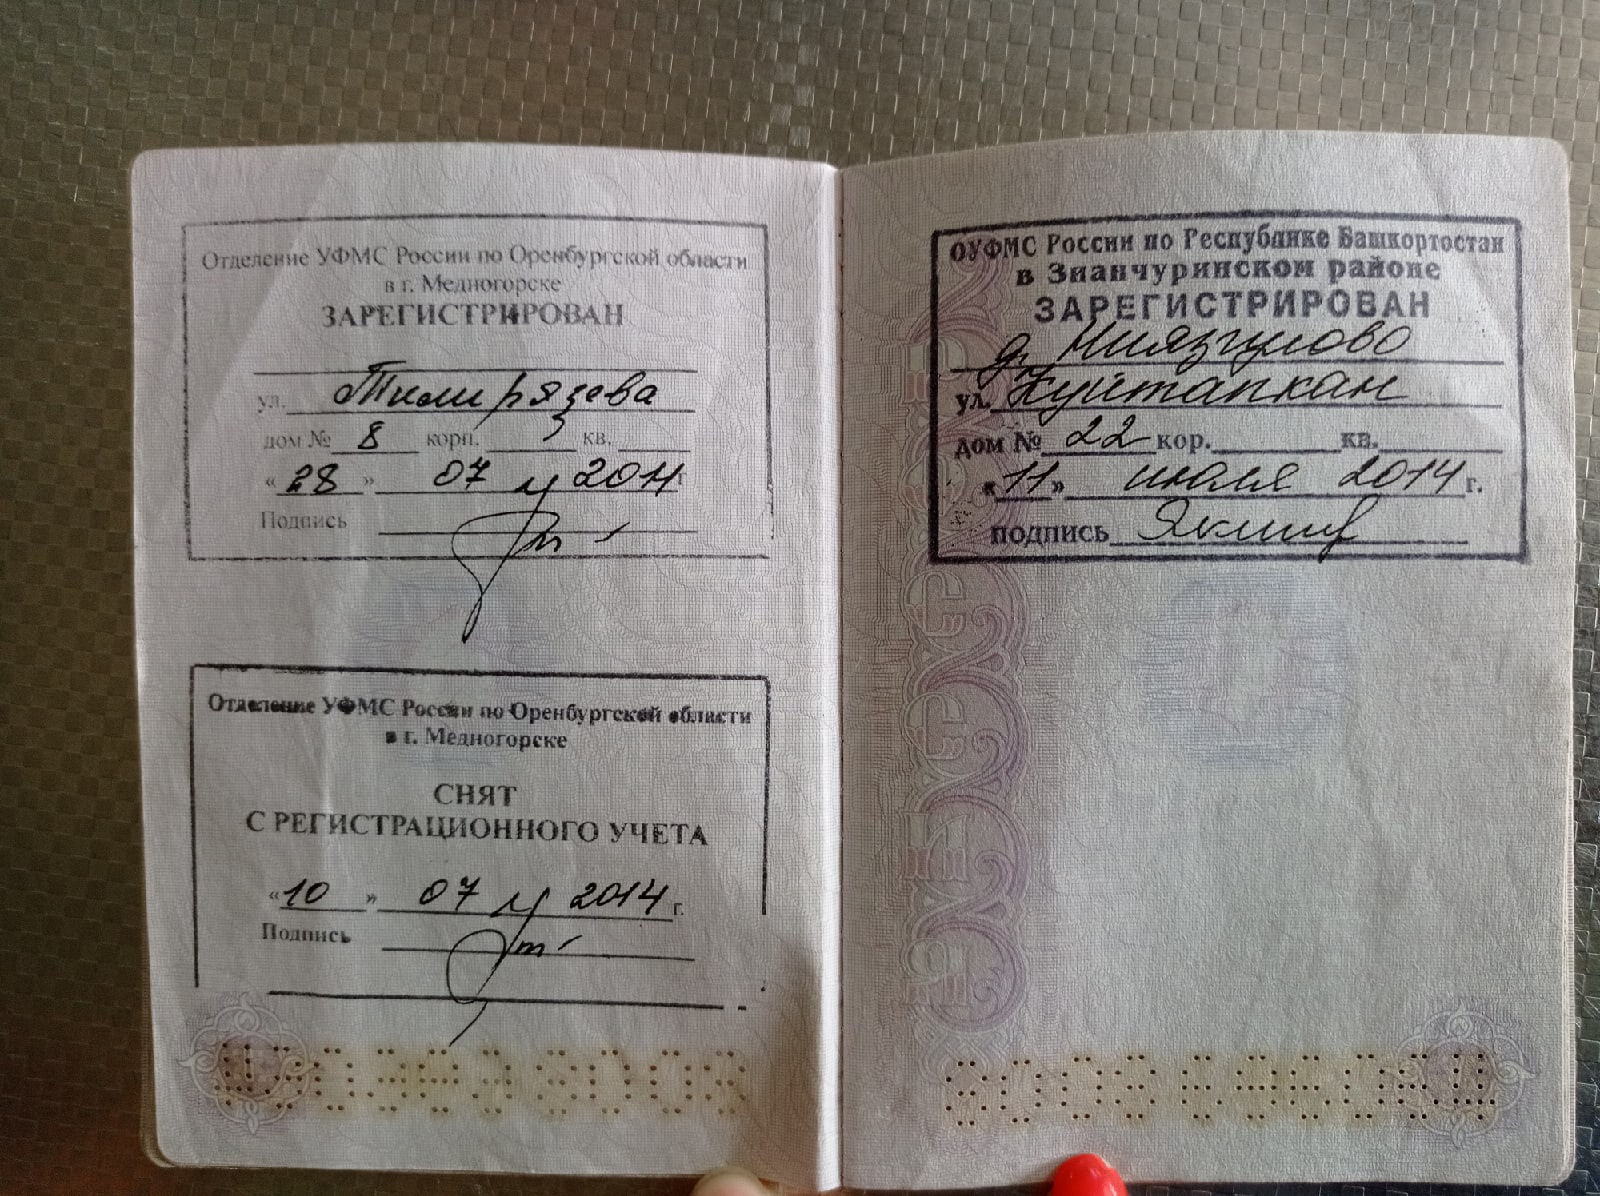 Отделение УФМС России по Оренбургской области
в г. Медногорске
ЗАРЕГИСТРИРОВАН
ул. Тимирязева
дом № 8 корп. кв.
«28» 07 2011г.
Подпись
Отделение УФМС России по Оренбургской области
в г. Медногорске
СНЯТ
С РЕГИСТРАЦИОННОГО УЧЕТА
«10» 07 2014г.
Подпись
ОУФМС России по Республике Башкортостан
в Зианчуринском районе
ЗАРЕГИСТРИРОВАН
д. Ниязгулово
ул. Куйтапкан
дом № 22 кор. кв.
«11» июля 2014г.
подпись